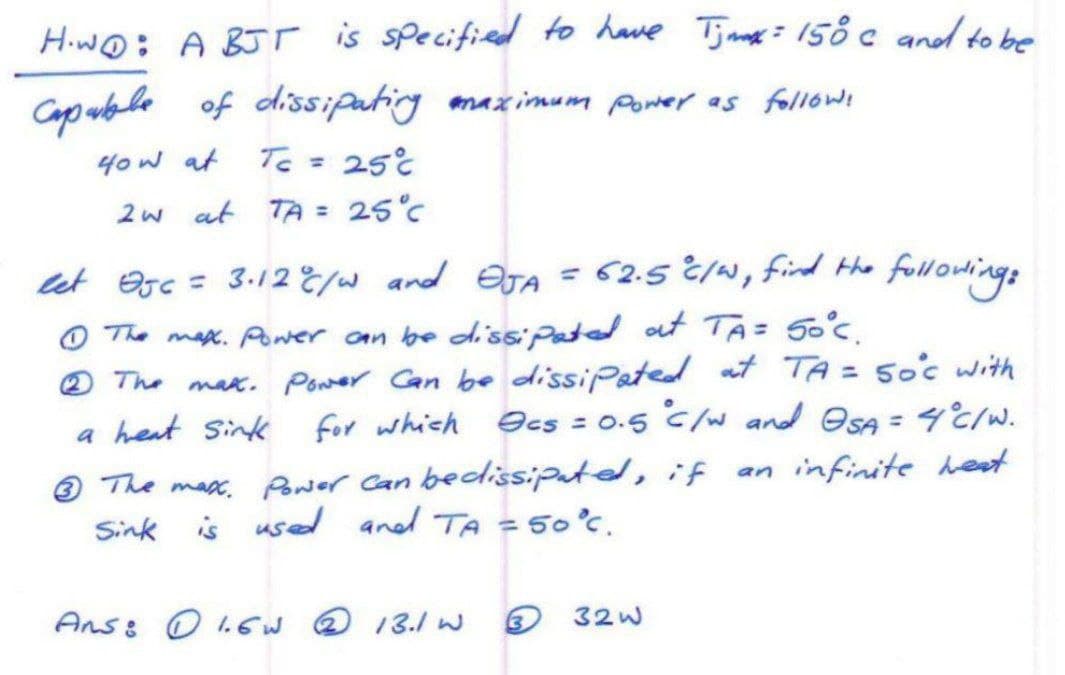 H.W①: A BJT is specified to have Tjmax = 150°C and to be
Capable of dissipating maximum power as follow:
40W at TC = 25°C
2W at TA = 25°C
let θJC = 3.12°C/W and θJA = 62.5°C/W, find the following:
① The max. Power can be dissipated at TA = 50°C.
② The max. Power Can be dissipated at TA = 50°C with
a heat Sink for which θcs = 0.5°C/W and θSA = 4°C/W.
③ The max. Power Can be dissipated, if an infinite heat
Sink is used and TA = 50°C.
Ans: ① 1.6W ② 13.1W ③ 32W